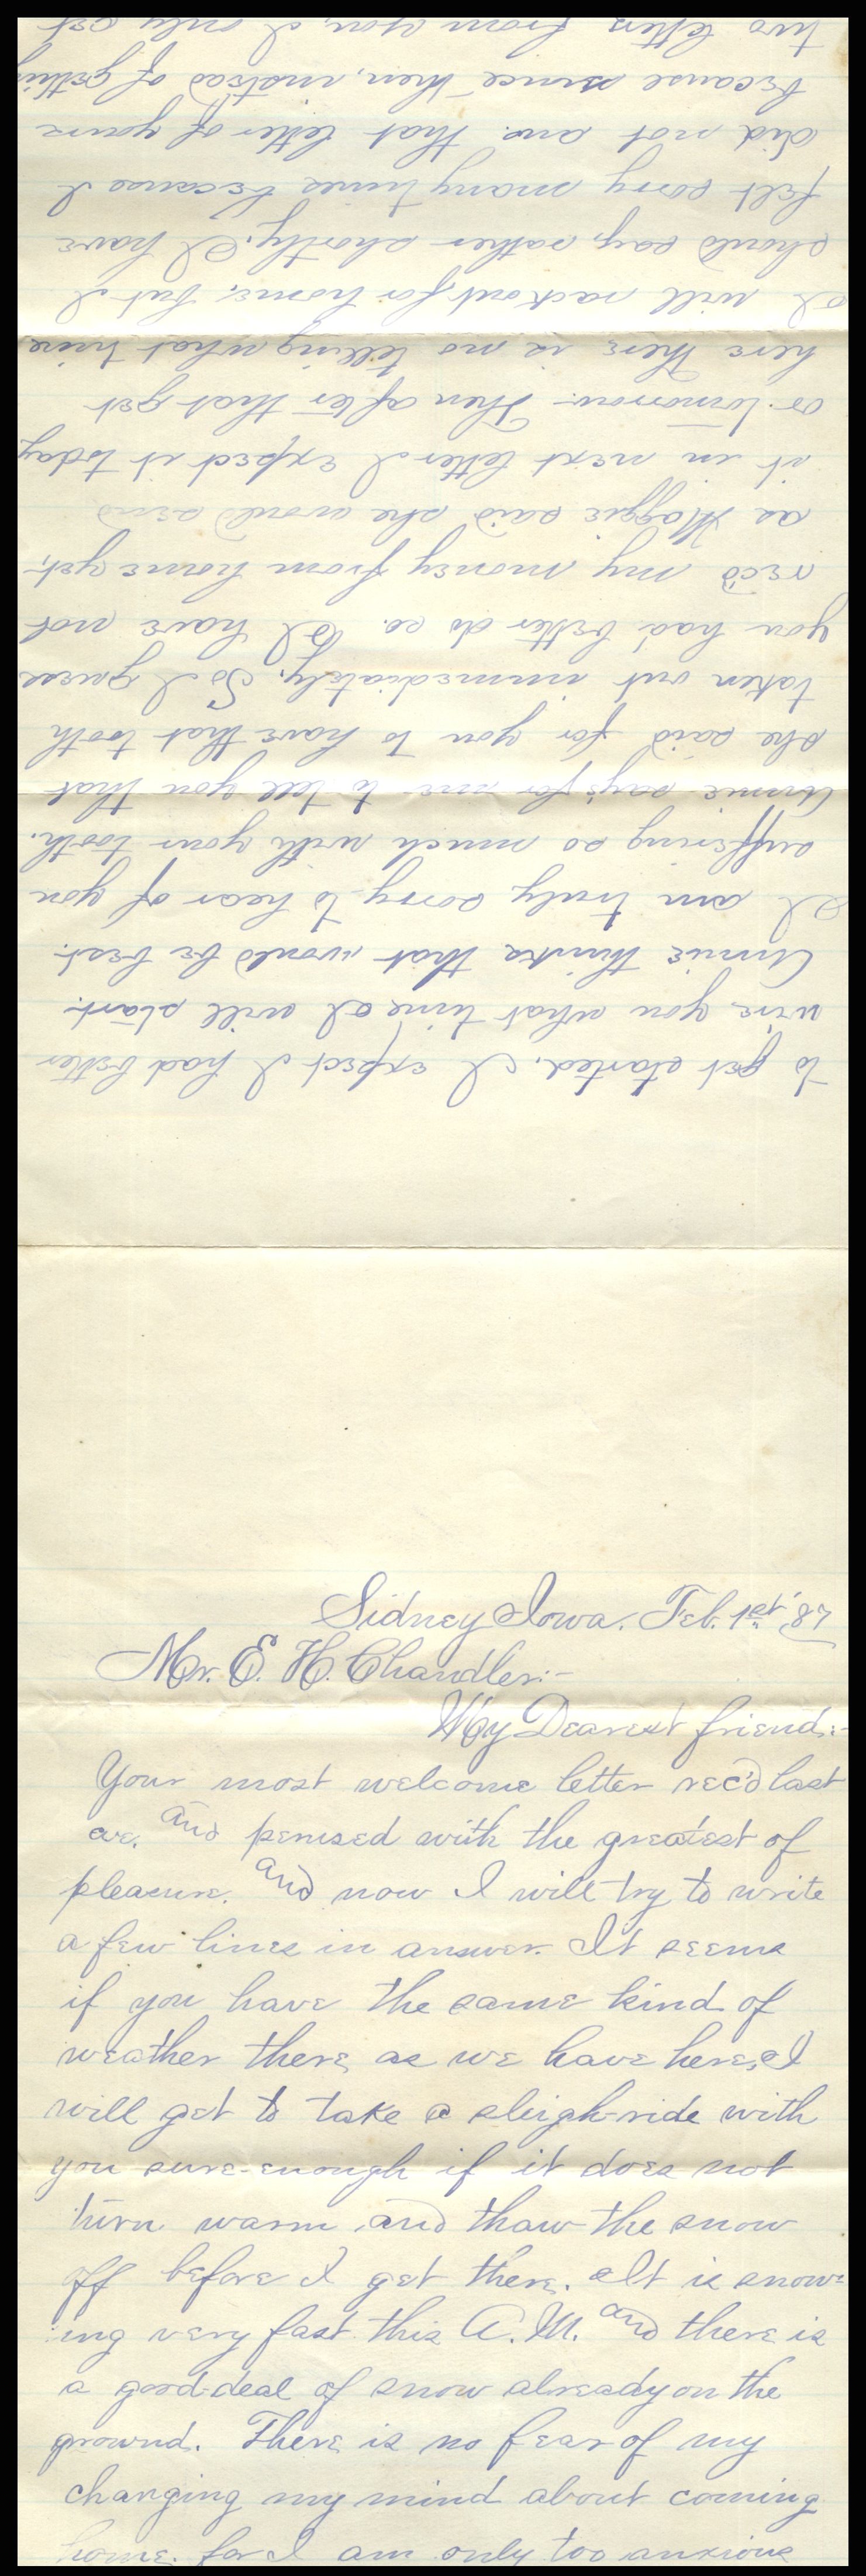 Sidney Iowa. Feb. 1st, '87
Mr. E. H. Chandler:-
My Dearest friend:-
Your most welcome letter rec'd last
eve. and perused with the greatest of
pleasure. and now I will try to write
a few lines in answer. It seems
if you have the same kind of
weather there, as we have here, I
will get to take a sleigh-ride with
you sure-enough if it does not
turn warm and thaw the snow
off before I get there. It is snow=
ing very fast this A.M. and there is
a good-deal of snow already on the
ground. There is no fear of my
changing my mind about coming
home. for I am only too anxious
to get started. I expect I had better
wire you what time I will start.
Annie thinks that would be best.
I am truly sorry to hear of you
suffering so much with your tooth.
Annie says for me to tell you that
she said for you to have that tooth
taken out immediately. So I guess
you had better do so. I have not
rec'd my money from home yet,
as Maggie said she would send
it in next letter I expect it today
or tomorrow. Then after that get
here there is no telling what time
I will rack out for home, but I
should say, rather shortly. I have
felt sorry many times because I
did not ans. that letter of yours
because since then, instead of getting
two letters from you, I only get